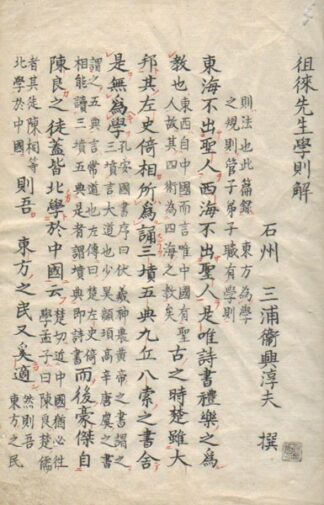 徂徠先生學則解
石州　三浦衞興淳夫　撰
則法也此篇録　東方為學
之規則管子弟子職有學則
東海不出聖人西海不出聖人是唯詩書禮樂之為
教也東西自中國而言唯中國有聖
人故其四術為四海之教矣古之時楚雖大
邦其左史倚相所為誦三墳五典九丘八索之書舍
是無為學孔安國書序曰伏羲神農黄帝之書謂之
三墳言大道也少昊顓頊高辛唐虞之書
謂之五典言常道也左傳曰楚左史倚
相能讀三墳五典是者謂墳典即詩書而後豪傑自
陳良之徒蓋皆北學於中國云楚切近中國猶必往
學孟子曰陳良楚儒
者其徒陳相等
北學於中國則吾　東方之民又奚適然則吾
東方之民